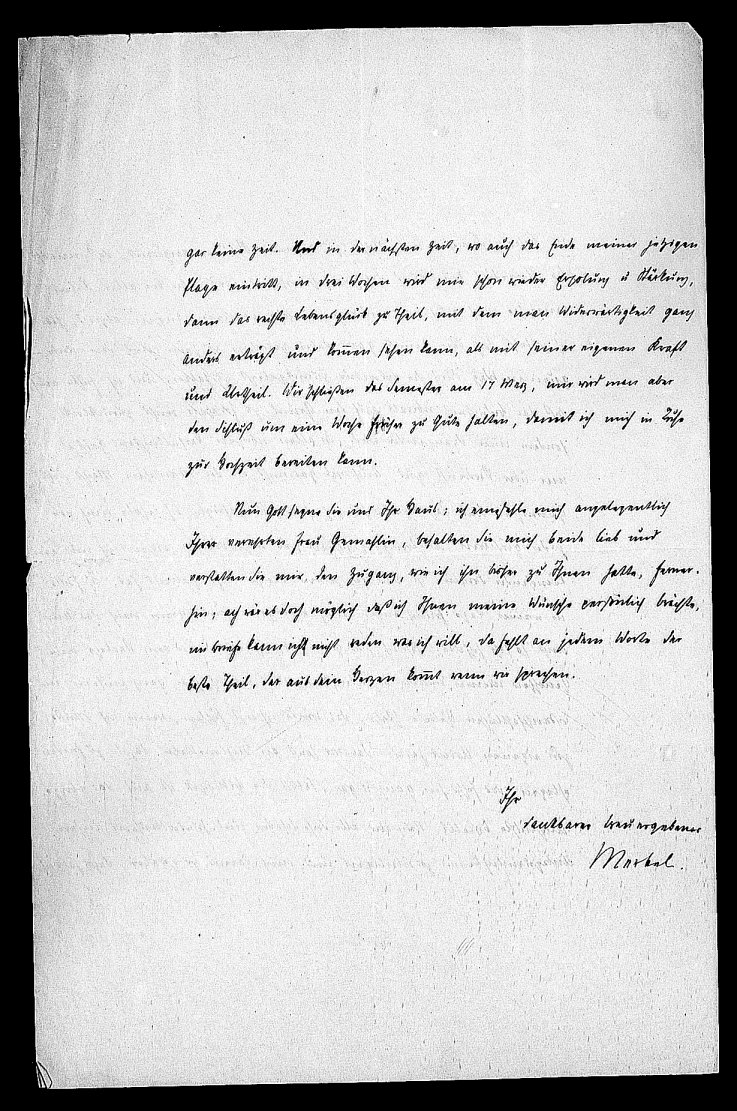 gar keine Zeit. Und in der nächsten Zeit, wo auch das Ende meiner jetzigen
Plage eintritt, in drei Wochen wird mir schon wieder Erholung u Stärkung,
dann das rechte Lebensglück zu Theil, mit dem man Widerwärtigkeit ganz
anders erträgt und kommen sehen kann, als mit seiner eigenen Kraft
und Urtheil. Wir schließen das Semester am 17 März, mir wird man aber
den Schluß um eine Woche früher zu Gute halten, damit ich mich in Ruhe
zur Hochzeit bereiten kann.
Nun Gott segne Sie und Ihr Haus; ich empfehle mich angelegentlich
Ihrer verehrten Frau Gemahlin, behalten Sie mich beide lieb und
verstatten Sie mir, den Zugang, wie ich ihn bisher zu Ihnen hatte, ferner-
hin; ach wär es doch möglich daß ich Ihnen meine Wünsche persönlich brächte,
im briefe kann ich nicht reden was ich will, da fehlt an jedem Worte der
beste Theil, der aus dem Herzen kommt wenn wir sprechen.
Ihr
dankbarer treuergebener
Merkel.